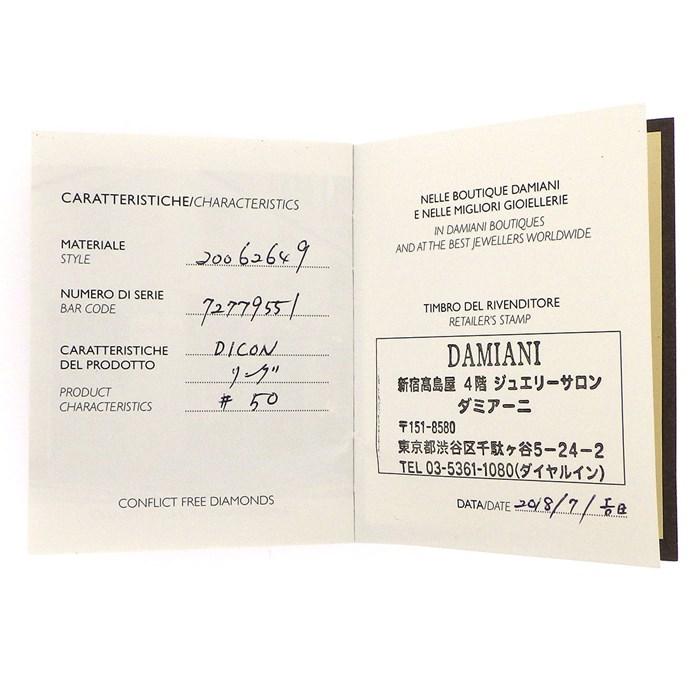 CARATTERISTICHE/CHARACTERISTICS
MATERIALE
STYLE
20062649
NUMERO DI SERIE
BAR CODE
72779551
CARATTERISTICHE
DEL PRODOTTO
PRODUCT
CHARACTERISTICS
D.ICON
リング
# 50
CONFLICT FREE DIAMONDS
NELLE BOUTIQUE DAMIANI
E NELLE MIGLIORI GIOIELLERIE
IN DAMIANI BOUTIQUES
AND AT THE BEST JEWELLERS WORLDWIDE
TIMBRO DEL RIVENDITORE
RETAILER'S STAMP
DAMIANI
新宿髙島屋 4階 ジュエリーサロン
ダミアーニ
〒151-8580
東京都渋谷区千駄ヶ谷5-24-2
TEL 03-5361-1080(ダイヤルイン)
DATA/DATE 2018/7/吉日